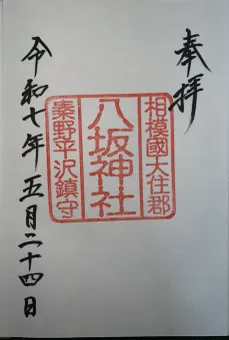 奉拝
相模國大住郡
八坂神社
秦野平沢鎮守
令和七年五月二十四日